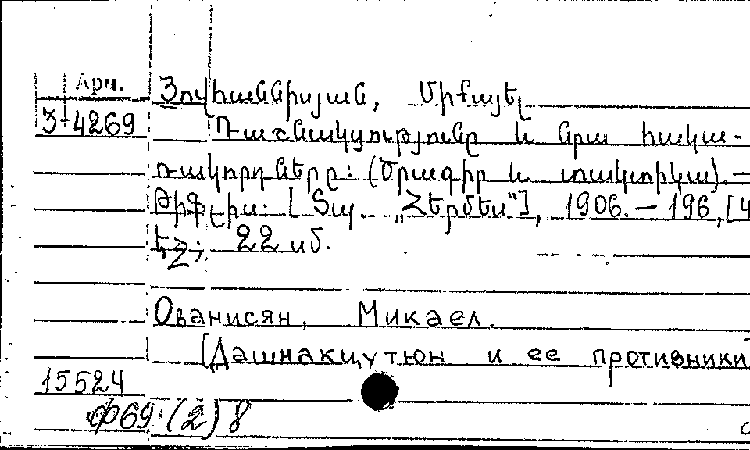 Арм.
Յովհաննիսյան, Միքայել
Յ-4269
Դաշնակցությունը և նրա հակա-
ռակորդները: (Ծրագիր և տակտիկա). —
Թիֆլիս: [Տպ. „Հերմես“], 1906. — 196, [4
էջ; 22 սմ.
Ованисян, Микаел.
[Дашнакцутюн и ее противники
15524
ф69 (2) 8